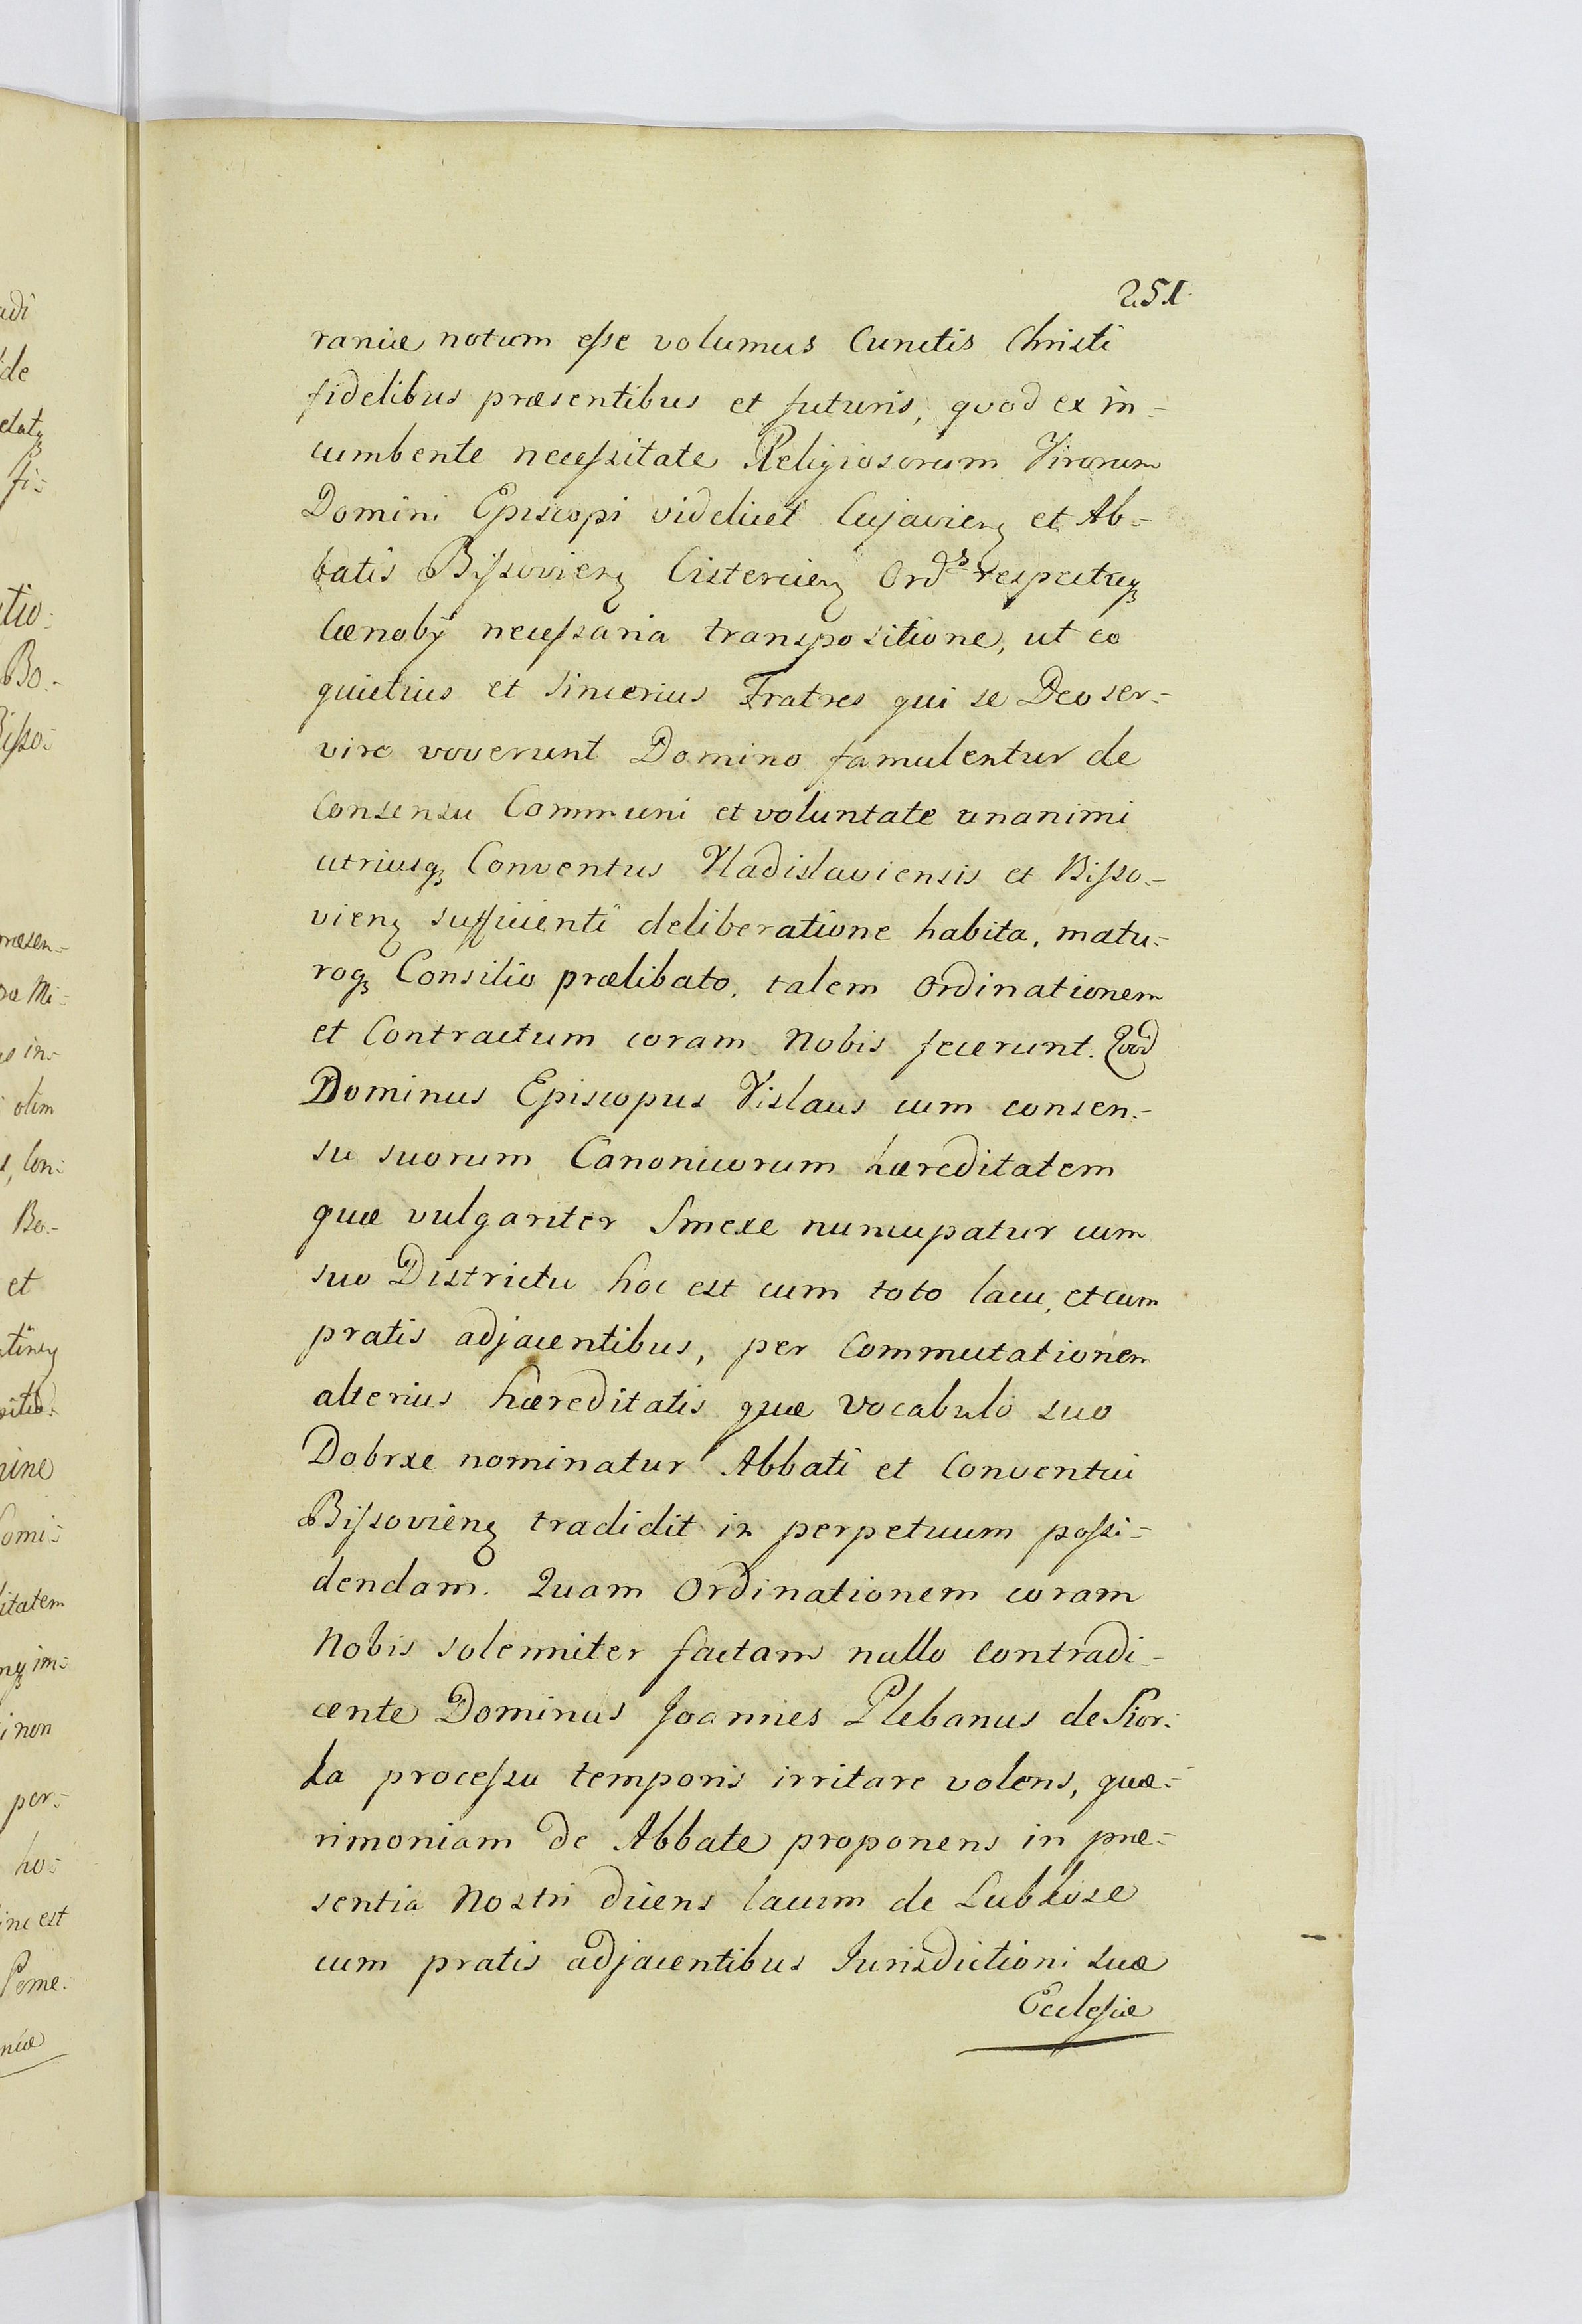 251.
raniæ notum eſse volumus Cunctis Christi
fidelibus præsentibus et futuris, quod ex in=
cumbente neceſsitate Religiosorum Virorum
Domini Episcopi videlicet Cujavienꝫ et Ab=
batis Biſsovienꝫ Cistercienꝫ Ordˢ respectuqꝫ
Cœnobÿ neceſsaria transpositione, ut eo
quietius et sincerius Fratres qui se Deo ser=
vire voverunt Domino famulentur de
Consensu Communi et voluntate unanimi
utriusqꝫ Conventus Vladislaviensis et Biſso=
vienꝫ sufficienti deliberatione habita, matu=
roqꝫ Consilio prælibato, talem Ordinationem
et Contractum coram Nobis fecerunt. Qvod
Dominus Episcopus Vislaus cum consen=
su suorum Canonicorum hæreditatem
quæ vulgariter Smexe nuncupatur cum
suo Districtu hoc est cum toto lacu, et cum
pratis adjacentibus, per Commutationem
alterius hæreditatis quæ vocabulo suo
Dobrxe nominatur Abbati et Conventui
Biſsovienꝫ tradidit in perpetuum poſsi=
dendam. Quam Ordinationem coram
Nobis solenniter factam nullo contradi=
cente Dominus Joannes Plebanus de Sior=
ka proceſsu temporis irritare volens, quæ=
rimoniam de Abbate proponens in præ=
sentia Nostri dicens lacum de Lubkose
cum pratis adjacentibus Jurisdictioni suæ
Eccleſiæ
adi
de
etatqꝫ
fi=
tio=
Bo=
Biſso=
præsen=
Mi=
in=
olim
Con=
Bo=
et
tinenꝫ
mine
Domi=
litatem
im=
non
per=
ho=
inc est
Pome=
niæ